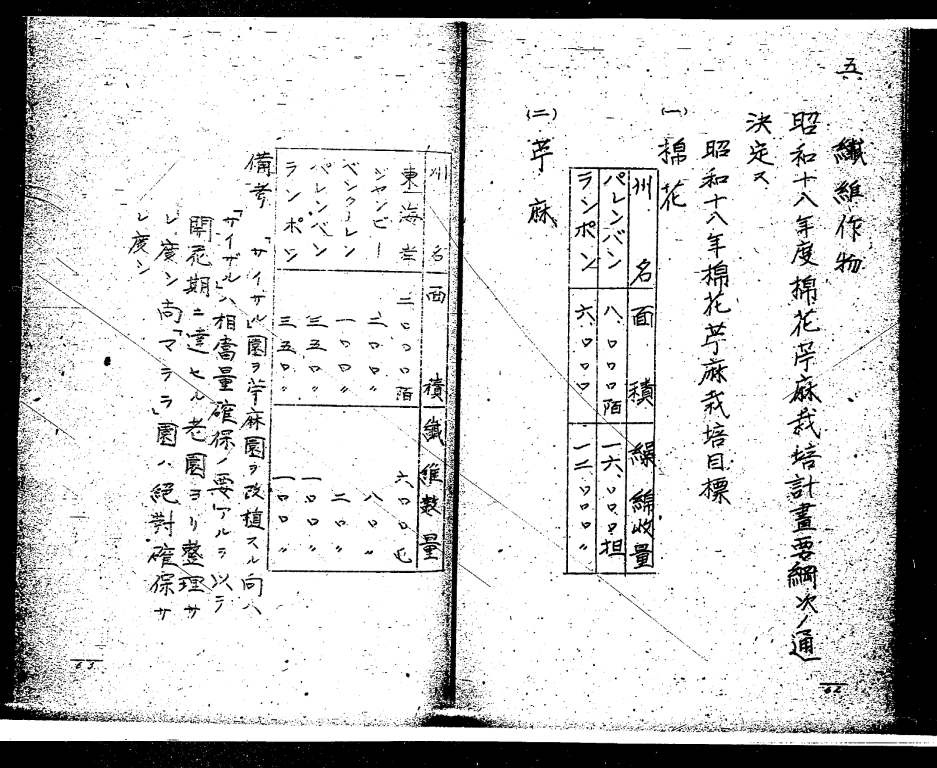 五 纎維作物
昭和十八年度棉花苧麻栽培計畫要綱次ノ通
決定ス
昭和十八年棉花苧麻栽培目標
(一) 棉花
州名 面積 繰綿收量
パレンバン 八、〇〇〇陌 一六、〇〇〇担
ランポン 六、〇〇〇 一二、〇〇〇〃
(二) 苧麻
62
州名 面積 纎維数量
東海岸 二〇〇〇陌 六〇〇
ジャンビー 二〇〇〃 八〇〃
ベンクーレン 一〇〇〃 二〇〃
パレンバン 三五〇〃 一〇〇〃
ランポン 三五〇〃 一〇〇〃
備考 「サイザル」園ヲ苧麻園ヲ改植スル向ハ
「サイザル」ハ相當量確保ノ要アルヲ以テ
開花期ニ達セル老園ヨリ整理サ
レ度シ尚「マラ」園ハ絕對確保サ
レ度シ
63